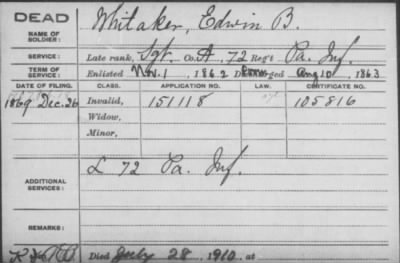 DEAD
NAME OF SOLDIER: Whitaker, Edwin B.
SERVICE: Late rank, Sgt. Co. A, 72 Reg't Pa. Inf.
TERM OF SERVICE: Enlisted Nov. 1, 1862 Discharged Aug 10, 1863
DATE OF FILING. CLASS. APPLICATION NO. LAW. CERTIFICATE NO.
1869 Dec. 26 Invalid, 151118 105816
Widow,
Minor,
ADDITIONAL SERVICES: L 72 Pa. Inf.
REMARKS:
Died July 28, 1910, at